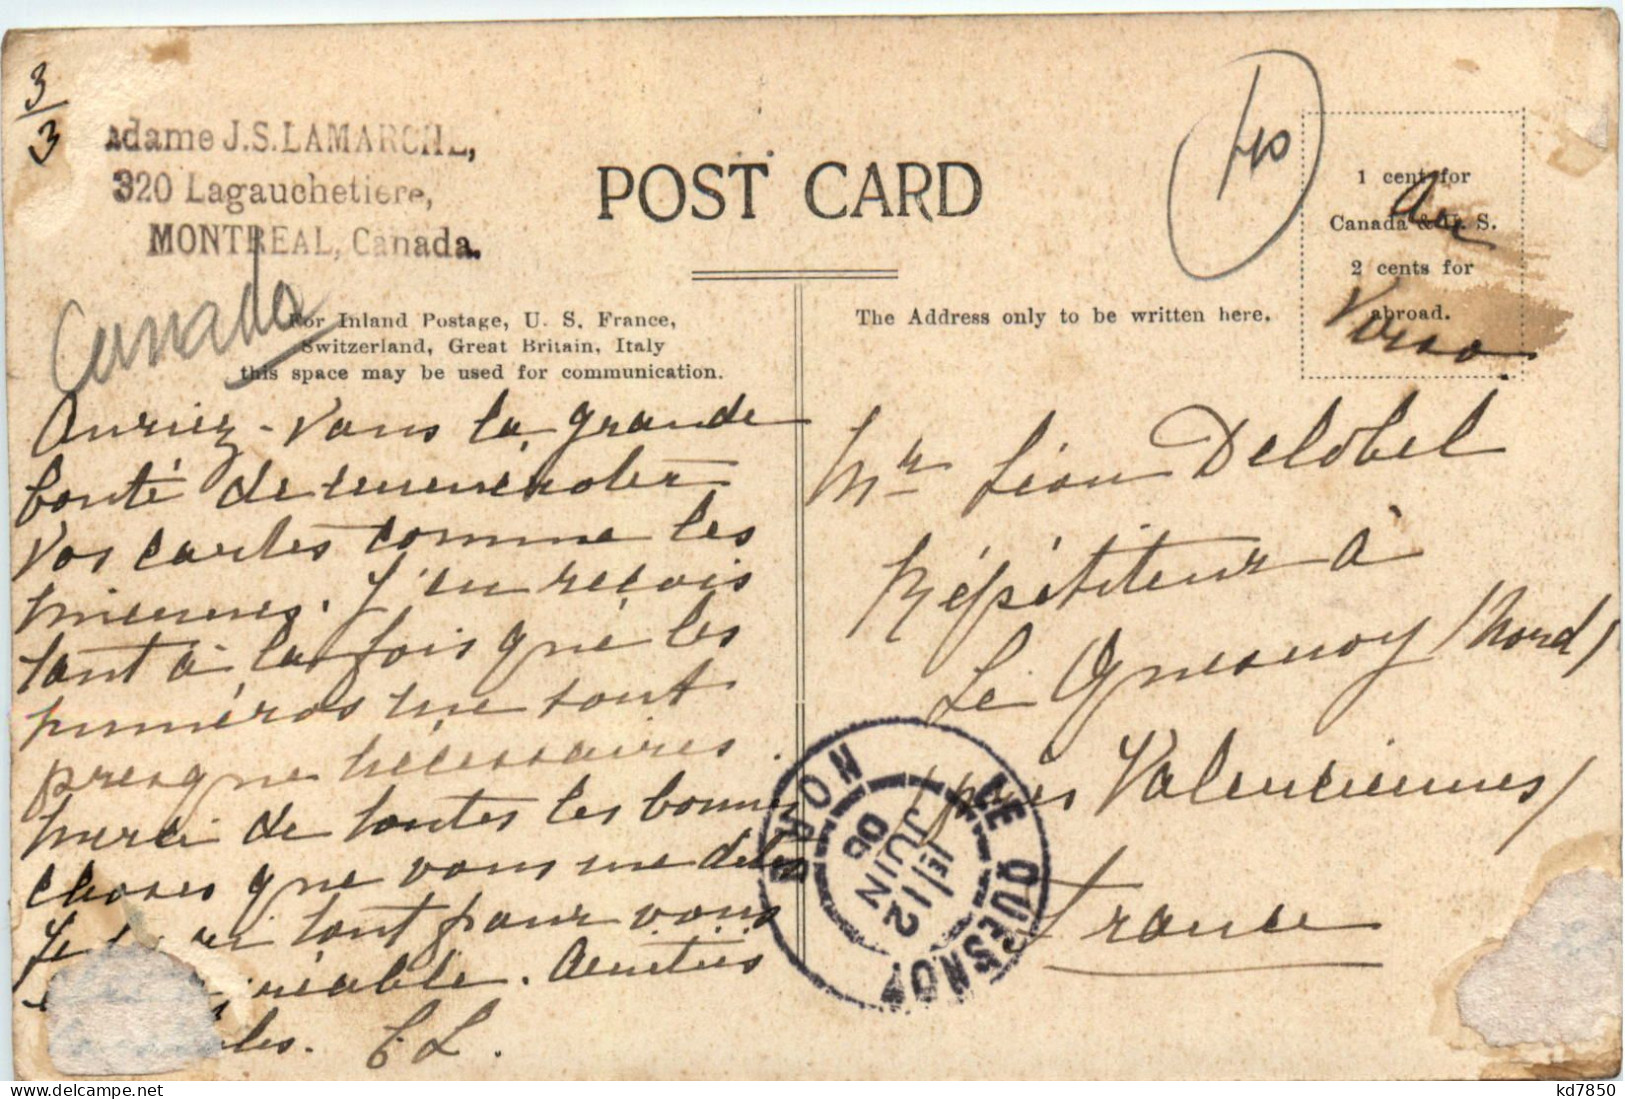 3/3
adame J.S. LAMARCHE,
320 Lagauchetiere,
MONTREAL, Canada.
Canada
POST CARD
40
1 cent for
Canada & U. S.
2 cents for
abroad.
Au
Verso
For Inland Postage, U. S. France,
Switzerland, Great Britain, Italy
this space may be used for communication.
The Address only to be written here.
Auriez-vous la grande
bonté de numéroter
vos cartes comme les
miennes. J'en reçois
tant à la fois que les
numéros me sont
presque nécessaires.
Merci de toutes les bonnes
choses que vous me dites
Je tant pour vous
. Amitiés
. C L.
Mr Léon Delobel
Répétiteur à
Le Quesnoy (Nord)
(près Valenciennes)
France
LE QUESNOY
NORD
1E/12
JUIN
06
kd7850